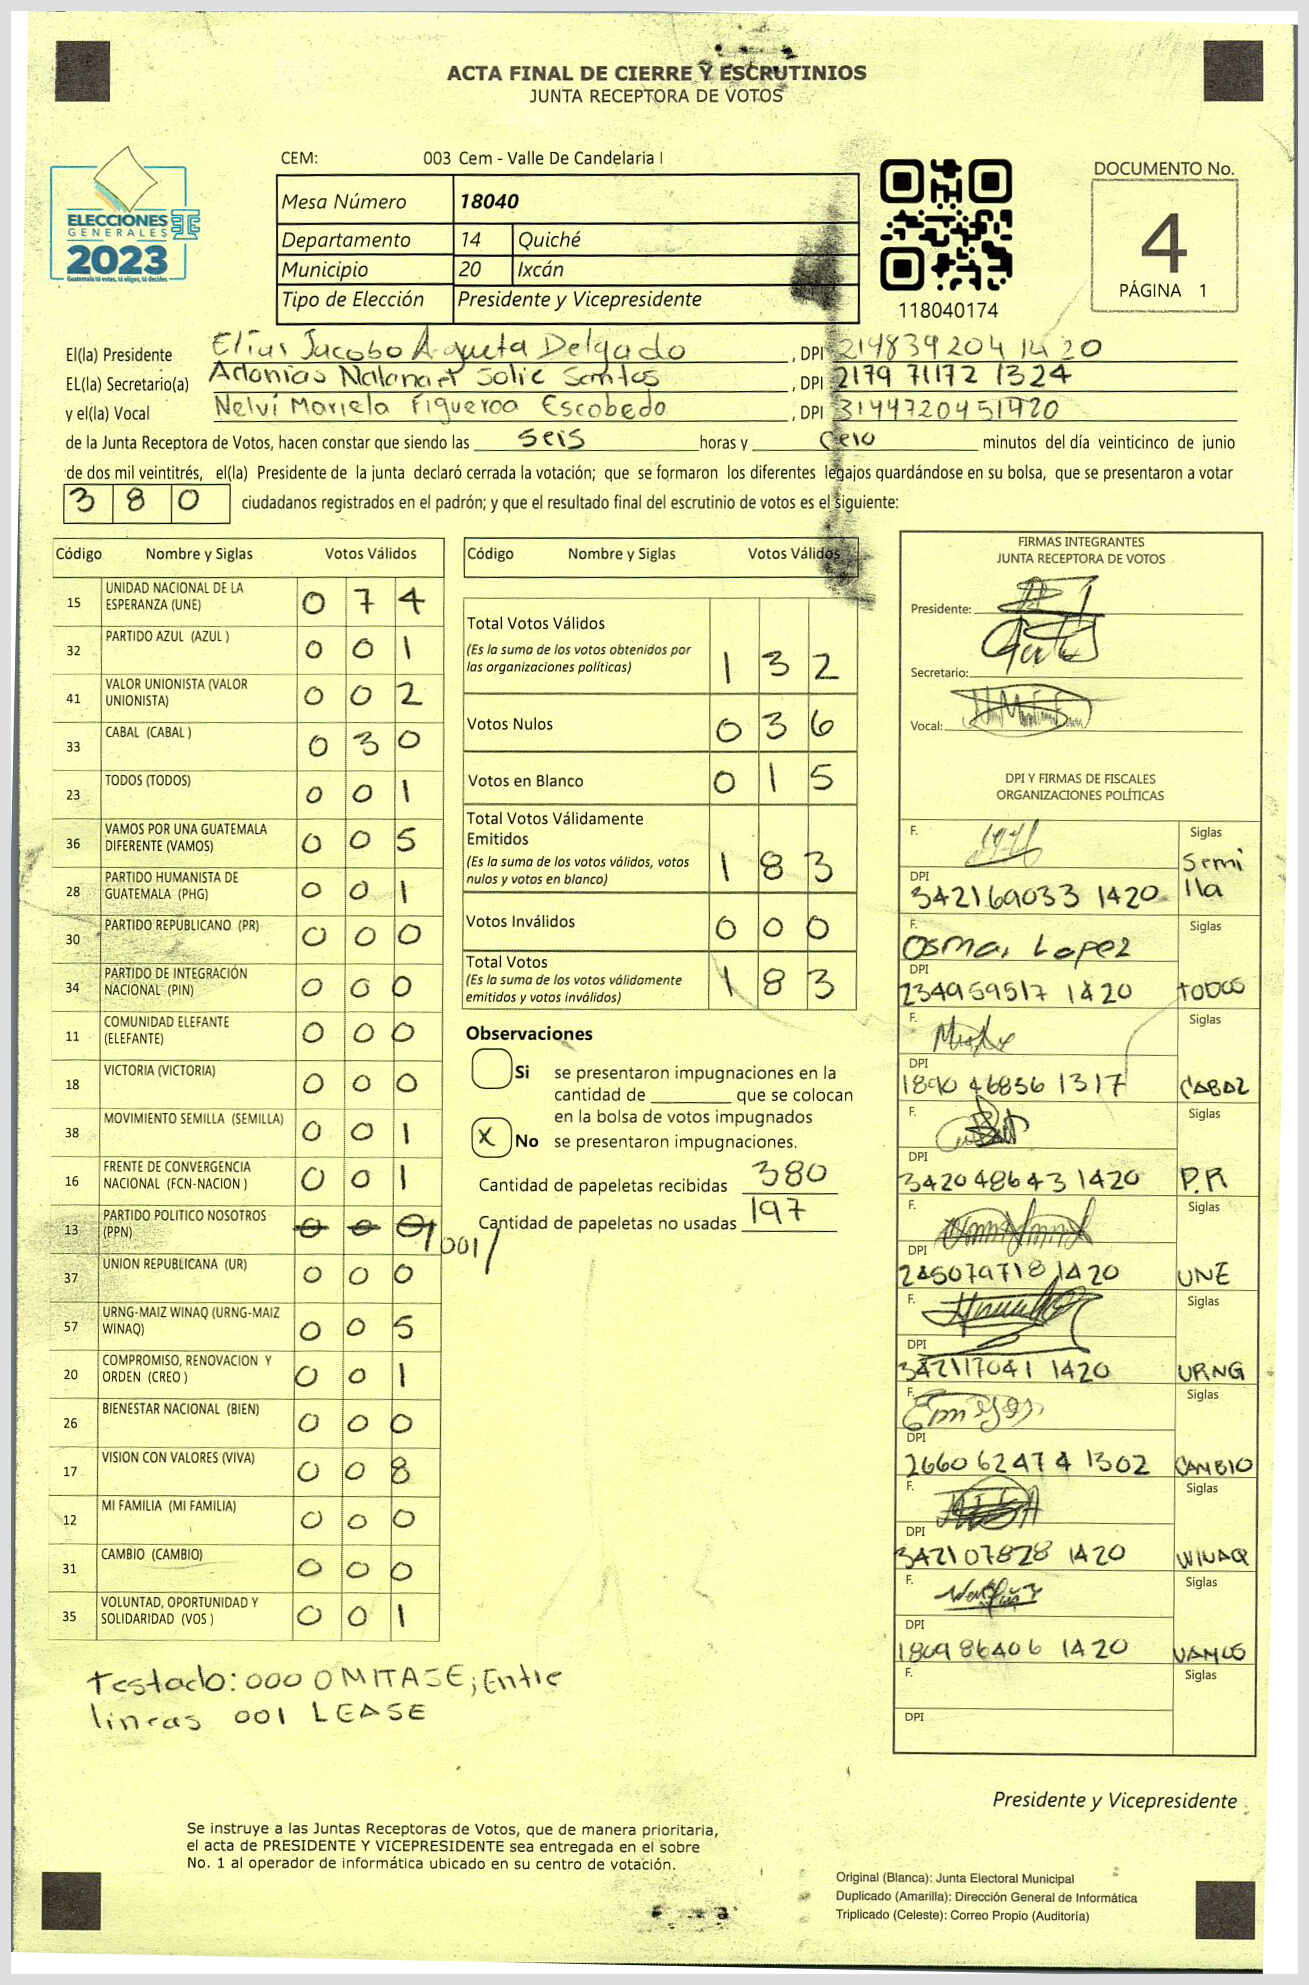 ACTA FINAL DE CIERRE Y ESCRUTINIOS
JUNTA RECEPTORA DE VOTOS
CEM: 003 Cem - Valle De Candelaria I
ELECCIONES
GENERALES
2023
Guatemala tú votas, tú eliges, tú decides.
Mesa Número 18040
Departamento 14 Quiché
Municipio 20 Ixcán
Tipo de Elección Presidente y Vicepresidente
118040174
DOCUMENTO No.
4
PÁGINA 1
El(la) Presidente Elías Jacobo Argueta Delgado, DPI 214839204 1420
EL(la) Secretario(a) Adonias Natanael Solis Santos, DPI 2179 71172 1324
y el(la) Vocal Nelvi Mariela Figueroa Escobedo, DPI 3144720451420
de la Junta Receptora de Votos, hacen constar que siendo las seis horas y cero minutos del día veinticinco de junio
de dos mil veintitrés, el(la) Presidente de la junta declaró cerrada la votación; que se formaron los diferentes legajos guardándose en su bolsa, que se presentaron a votar
380 ciudadanos registrados en el padrón; y que el resultado final del escrutinio de votos es el siguiente:
Código Nombre y Siglas Votos Válidos
15 UNIDAD NACIONAL DE LA ESPERANZA (UNE) 0 7 4
32 PARTIDO AZUL (AZUL ) 0 0 1
41 VALOR UNIONISTA (VALOR UNIONISTA) 0 0 2
33 CABAL (CABAL ) 0 3 0
23 TODOS (TODOS) 0 0 1
36 VAMOS POR UNA GUATEMALA DIFERENTE (VAMOS) 0 0 5
28 PARTIDO HUMANISTA DE GUATEMALA (PHG) 0 0 1
30 PARTIDO REPUBLICANO (PR) 0 0 0
34 PARTIDO DE INTEGRACIÓN NACIONAL (PIN) 0 0 0
11 COMUNIDAD ELEFANTE (ELEFANTE) 0 0 0
18 VICTORIA (VICTORIA) 0 0 0
38 MOVIMIENTO SEMILLA (SEMILLA) 0 0 1
16 FRENTE DE CONVERGENCIA NACIONAL (FCN-NACION ) 0 0 1
13 PARTIDO POLITICO NOSOTROS (PPN) 0 0 0 /001/
37 UNION REPUBLICANA (UR) 0 0 0
57 URNG-MAIZ WINAQ (URNG-MAIZ WINAQ) 0 0 5
20 COMPROMISO, RENOVACION Y ORDEN (CREO ) 0 0 1
26 BIENESTAR NACIONAL (BIEN) 0 0 0
17 VISION CON VALORES (VIVA) 0 0 8
12 MI FAMILIA (MI FAMILIA) 0 0 0
31 CAMBIO (CAMBIO) 0 0 0
35 VOLUNTAD, OPORTUNIDAD Y SOLIDARIDAD (VOS ) 0 0 1
Testado: 000 OMITASE; Entre
lineas 001 LEASE
Código Nombre y Siglas Votos Válidos
Total Votos Válidos 1 3 2
(Es la suma de los votos obtenidos por
las organizaciones políticas)
Votos Nulos 0 3 6
Votos en Blanco 0 1 5
Total Votos Válidamente
Emitidos 1 8 3
(Es la suma de los votos válidos, votos
nulos y votos en blanco)
Votos Inválidos 0 0 0
Total Votos 1 8 3
(Es la suma de los votos válidamente
emitidos y votos inválidos)
Observaciones
Si se presentaron impugnaciones en la
cantidad de ________ que se colocan
en la bolsa de votos impugnados
X No se presentaron impugnaciones.
Cantidad de papeletas recibidas 380
Cantidad de papeletas no usadas 197
FIRMAS INTEGRANTES
JUNTA RECEPTORA DE VOTOS
Presidente:
Secretario:
Vocal:
DPI Y FIRMAS DE FISCALES
ORGANIZACIONES POLÍTICAS
F. Siglas Semilla
DPI 342169033 1420
F. Osmar Lopez Siglas TODOS
DPI 234959517 1420
F. Siglas CABAL
DPI 1890 46856 1317
F. Siglas P.R
DPI 342048643 1420
F. Siglas UNE
DPI 245079718 1420
F. Siglas URNG
DPI 342117041 1420
F. Siglas CAMBIO
DPI 2660 62474 1302
F. Siglas WINAQ
DPI 342107828 1420
F. Siglas VAMOS
DPI 180986406 1420
F. Siglas
DPI
Presidente y Vicepresidente
Se instruye a las Juntas Receptoras de Votos, que de manera prioritaria,
el acta de PRESIDENTE Y VICEPRESIDENTE sea entregada en el sobre
No. 1 al operador de informática ubicado en su centro de votación.
Original (Blanca): Junta Electoral Municipal
Duplicado (Amarilla): Dirección General de Informática
Triplicado (Celeste): Correo Propio (Auditoría)